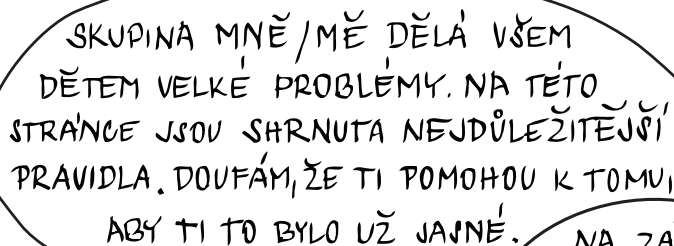 SKUPINA MNĚ/MĚ DĚLÁ VŠEM
DĚTEM VELKÉ PROBLÉMY. NA TÉTO
STRÁNCE JSOU SHRNUTA NEJDŮLEŽITĚJŠÍ
PRAVIDLA. DOUFÁM, ŽE TI POMOHOU K TOMU,
ABY TI TO BYLO UŽ JASNÉ.
NA